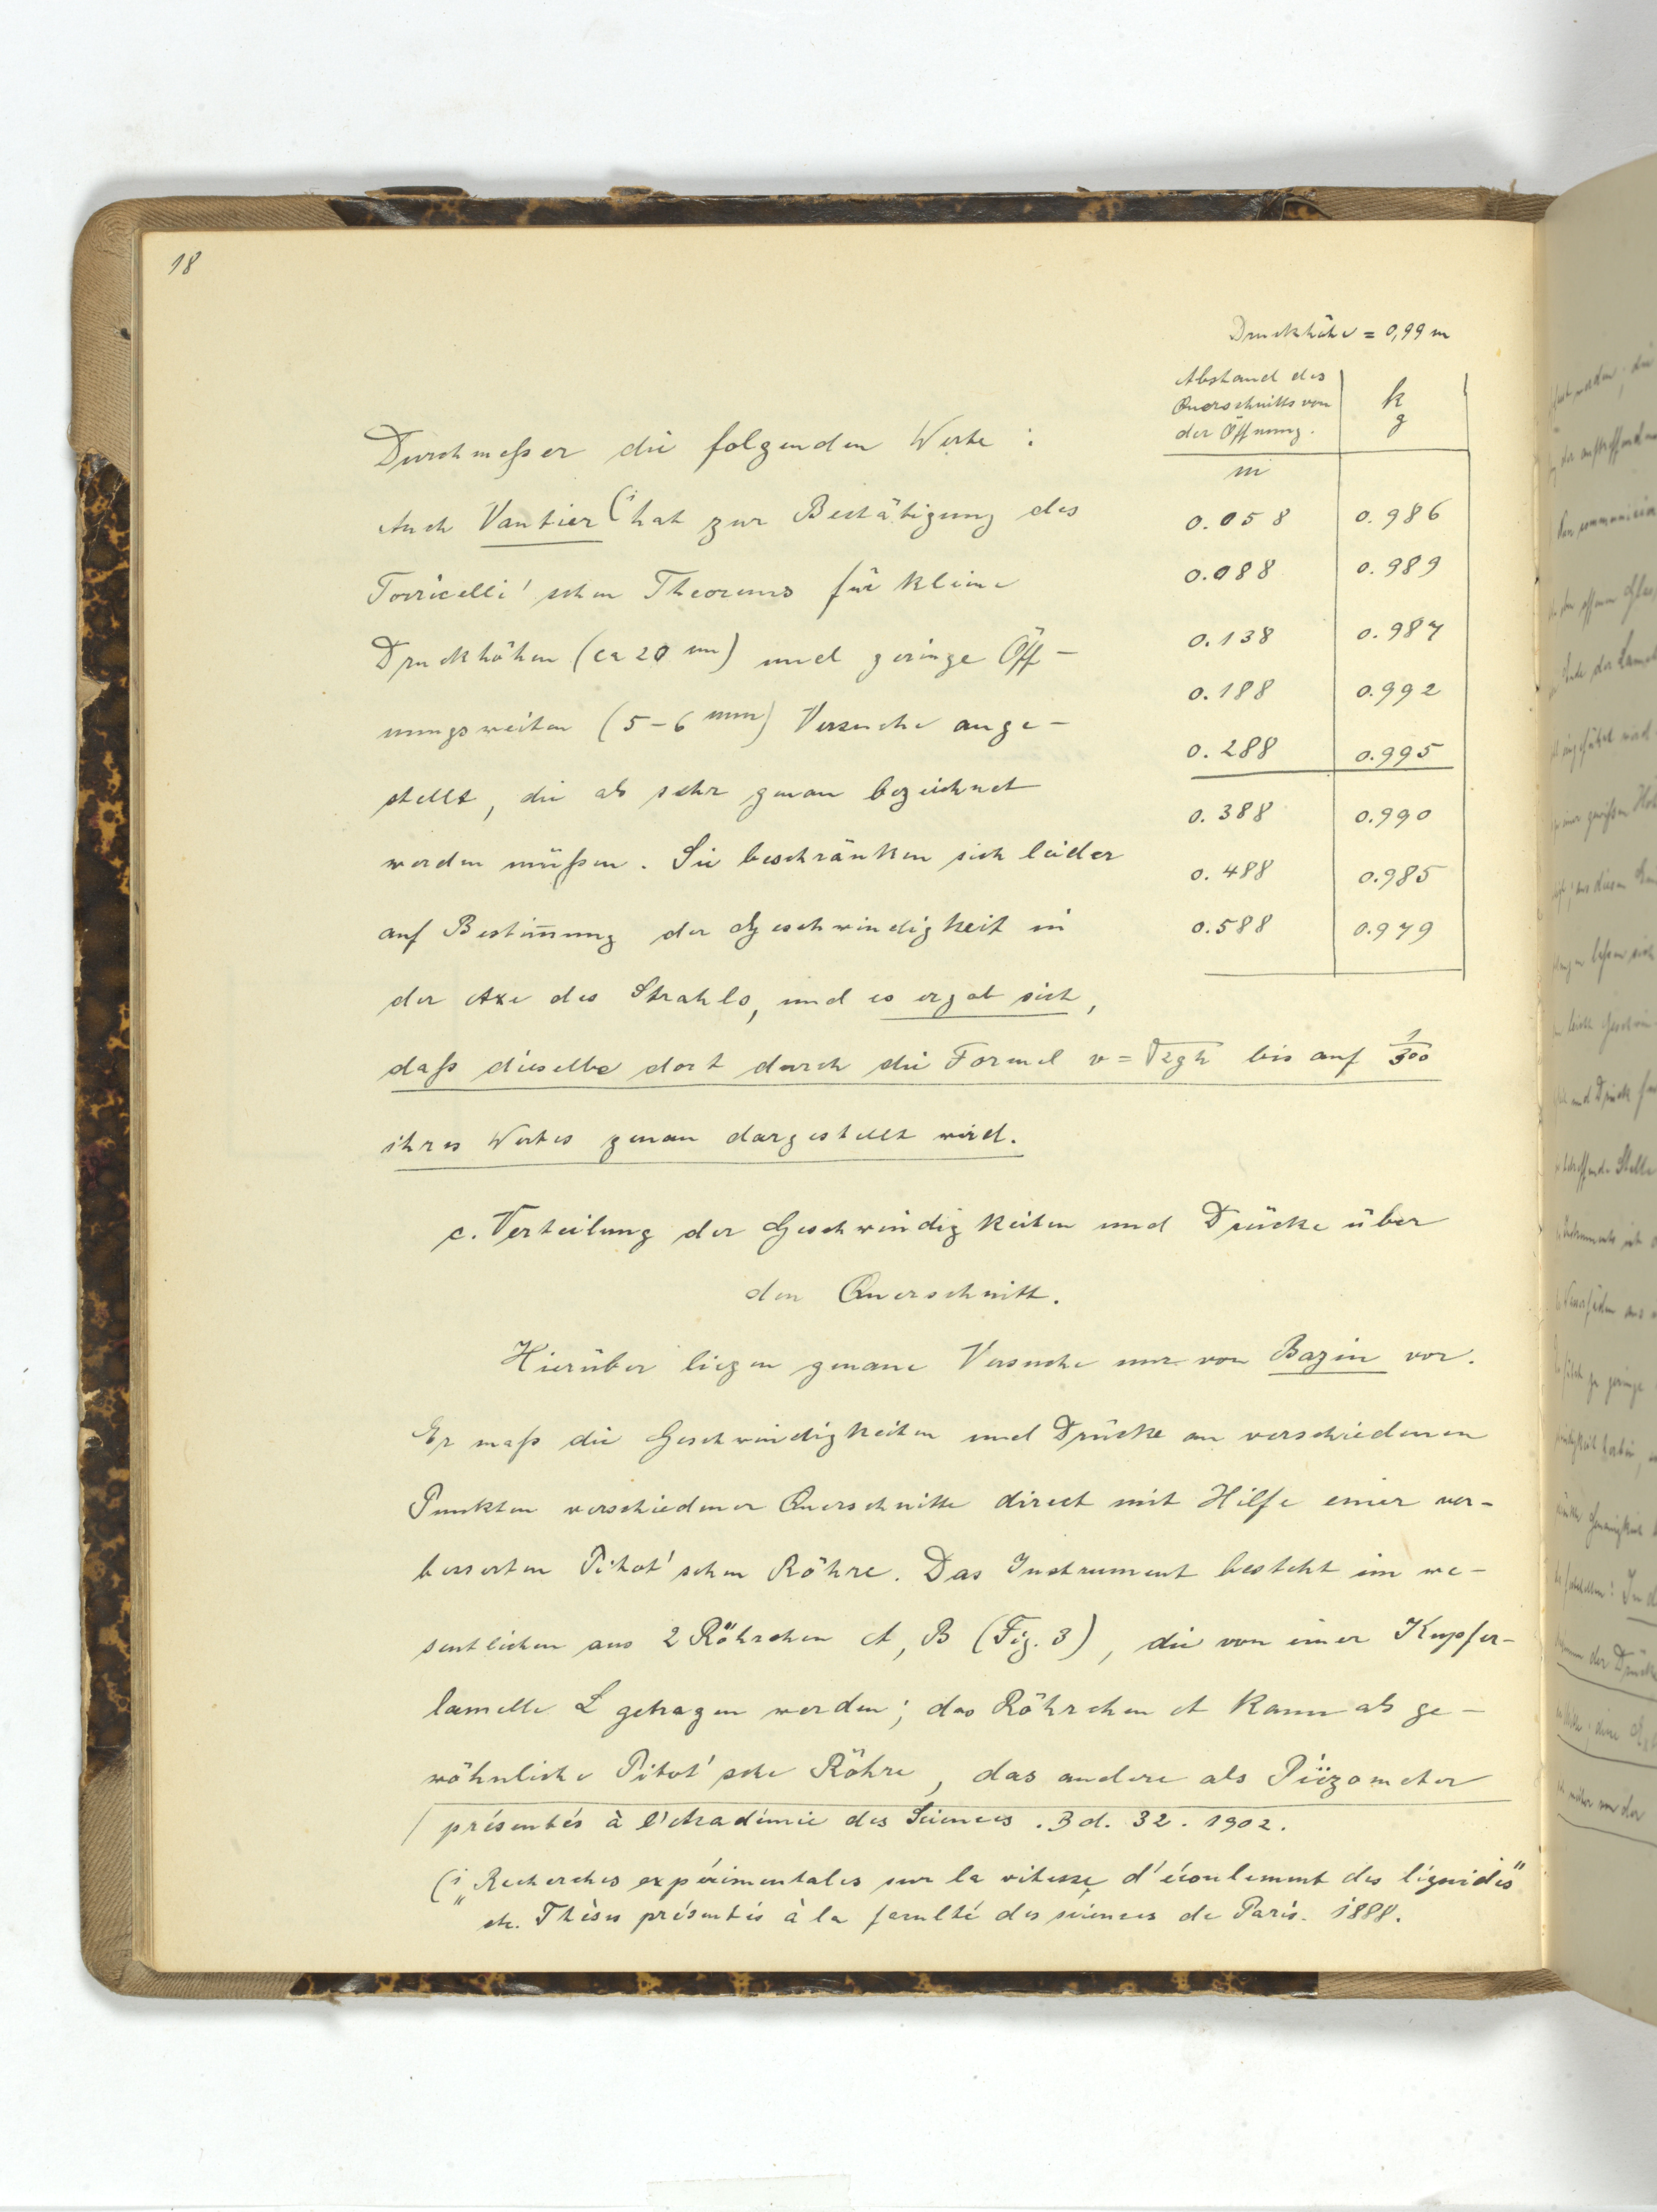 18
Druckhöhe = 0,99 m
Abstand des
Querschnitts von
der Öffnung.
k
g
m
0.058 0.986
0.088 0.989
0.138 0.987
0.188 0.992
0.288 0.995
0.388 0.990
0.488 0.985
0.588 0.979
Durchmeßer die folgenden Werte :
Auch Vautier (1 hat zur Bestätigung des
Torricelli'schen Theorems für kleine
Druckhöhen (ca 20 cm) und geringe Öff-
nungsweiten (5-6 mm) Versuche ange-
stellt, die als sehr genau bezeichnet
werden müßen. Sie beschränken sich leider
auf Bestim̅ung der Geschwindigkeit in
der Axe des Strahls, und es ergab sich,
daß dieselbe dort durch die Formel v = √2gh bis auf 1/300
ihres Wertes genau dargestellt wird.
c. Verteilung der Geschwindigkeiten und Drücke über
den Querschnitt.
Hierüber liegen genaue Versuche nur von Bazin vor.
Er maß die Geschwindigkeiten und Drücke an verschiedenen
Punkten verschiedener Querschnitte direct mit Hilfe einer ver-
besserten Pitot'schen Röhre. Das Instrument besteht im we-
sentlichen aus 2 Röhrchen A, B (Fig. 3), die von einer Kupfer-
lamelle L getragen werden; das Röhrchen A kann als ge-
wöhnliche Pitot'sche Röhre, das andere als Piëzometer
présentés à l'Académie des Sciences. Bd. 32. 1902.
(1 „Recherches expérimentales sur la vitesse d'écoulement des liquides"
etc. Thèses présentés à la faculté des sciences de Paris. 1888.